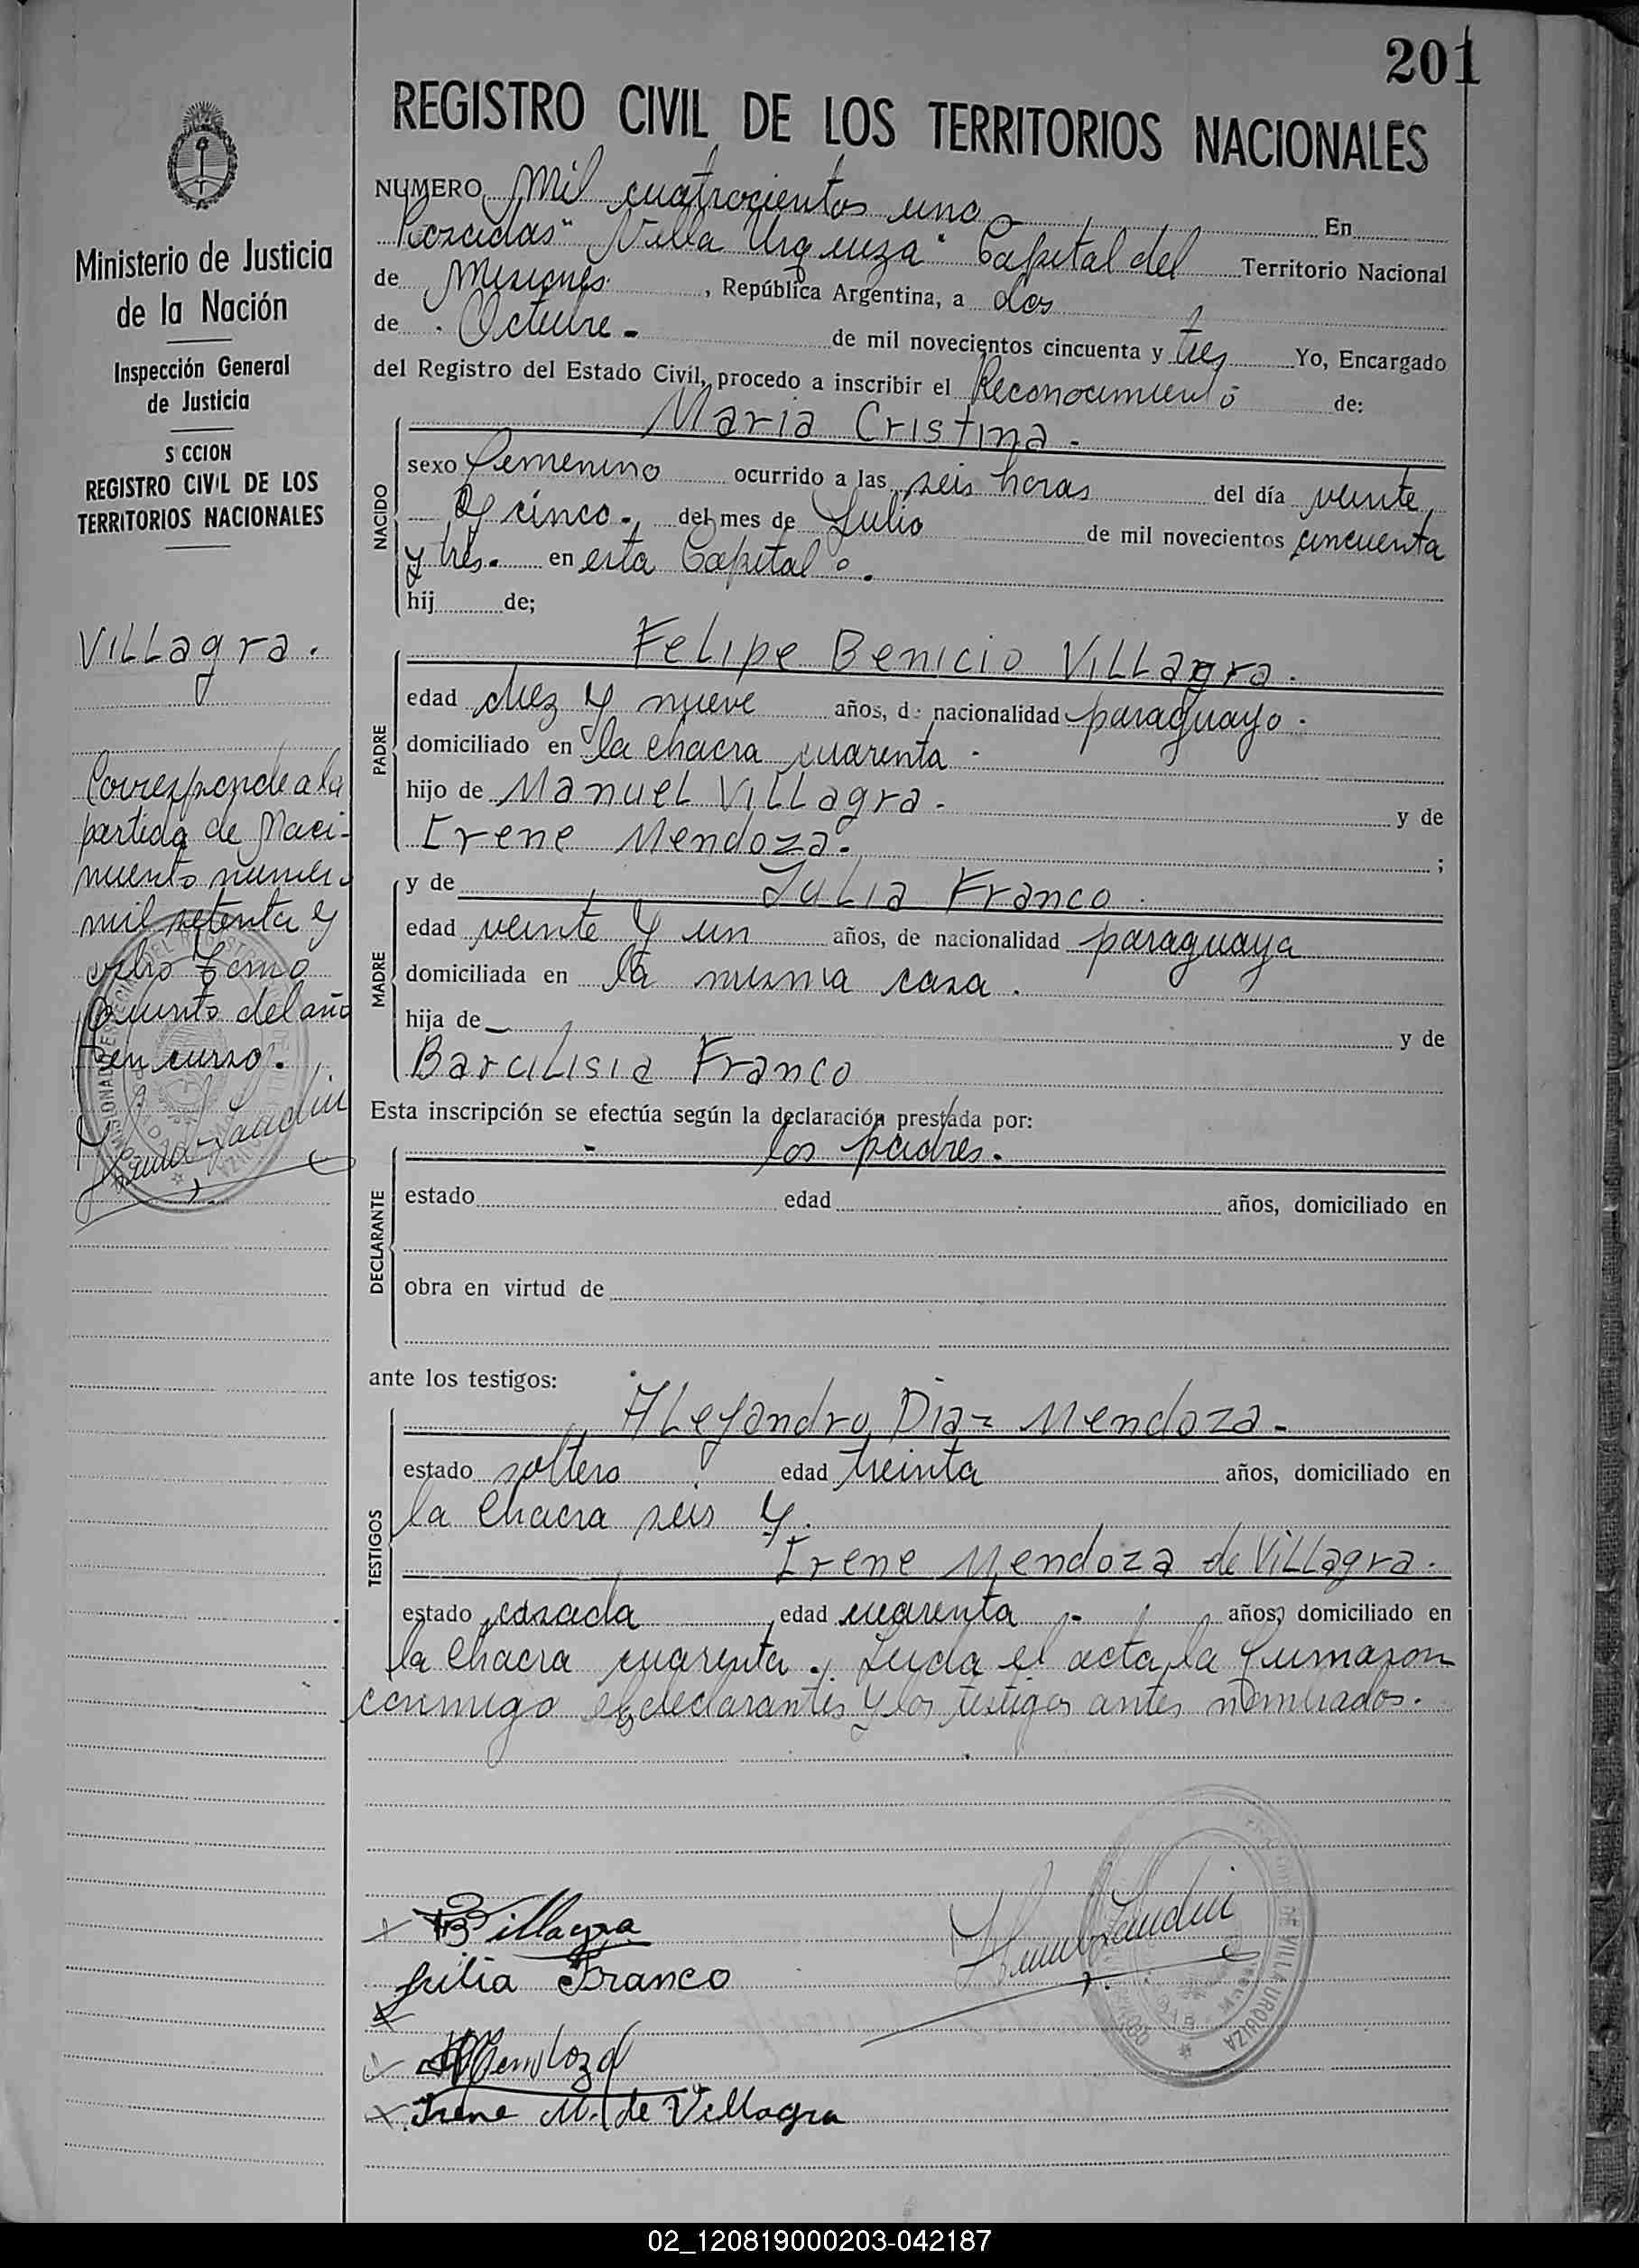 201
REGISTRO CIVIL DE LOS TERRITORIOS NACIONALES
Ministerio de Justicia
de la Nación
Inspección General
de Justicia
S CCION
REGISTRO CIVIL DE LOS
TERRITORIOS NACIONALES
Villagra.
Corresponde a la
partida de Naci-
miento número
mil setenta y
ocho tomo
Quinto del año
en curso.
NUMERO Mil cuatrocientos uno En
Posadas "Villa Urquiza" Capital del Territorio Nacional
de Misiones, República Argentina, a dos
de Octubre de mil novecientos cincuenta y tres Yo, Encargado
del Registro del Estado Civil, procedo a inscribir el Reconocimiento de:
NACIDO
Maria Cristina.
sexo femenino ocurrido a las seis horas del día veinte
y cinco., del mes de Julio de mil novecientos cincuenta
y tres. en esta Capital.
hij de;
PADRE
Felipe Benicio Villagra.
edad diez y nueve años, de nacionalidad paraguayo.
domiciliado en la chacra cuarenta
hijo de Manuel Villagra. y de
Irene Mendoza. ;
MADRE
y de Julia Franco.
edad veinte y un años, de nacionalidad paraguaya
domiciliada en la misma casa.
hija de y de
Barcilisia Franco
Esta inscripción se efectúa según la declaración prestada por:
DECLARANTE
los padres.
estado edad años, domiciliado en
obra en virtud de
ante los testigos:
TESTIGOS
Alejandro Diaz Mendoza.
estado soltero edad treinta años, domiciliado en
la chacra seis y
Irene Mendoza de Villagra.
estado casada edad cuarenta años, domiciliado en
la chacra cuarenta. Leida el acta, la firmaron
conmigo declarantes y los testigos antes nombrados.
Villagra
Julia Franco
Mendoza
Irene M. de Villagra
DE VILLA URQUIZA
02_120819000203-042187